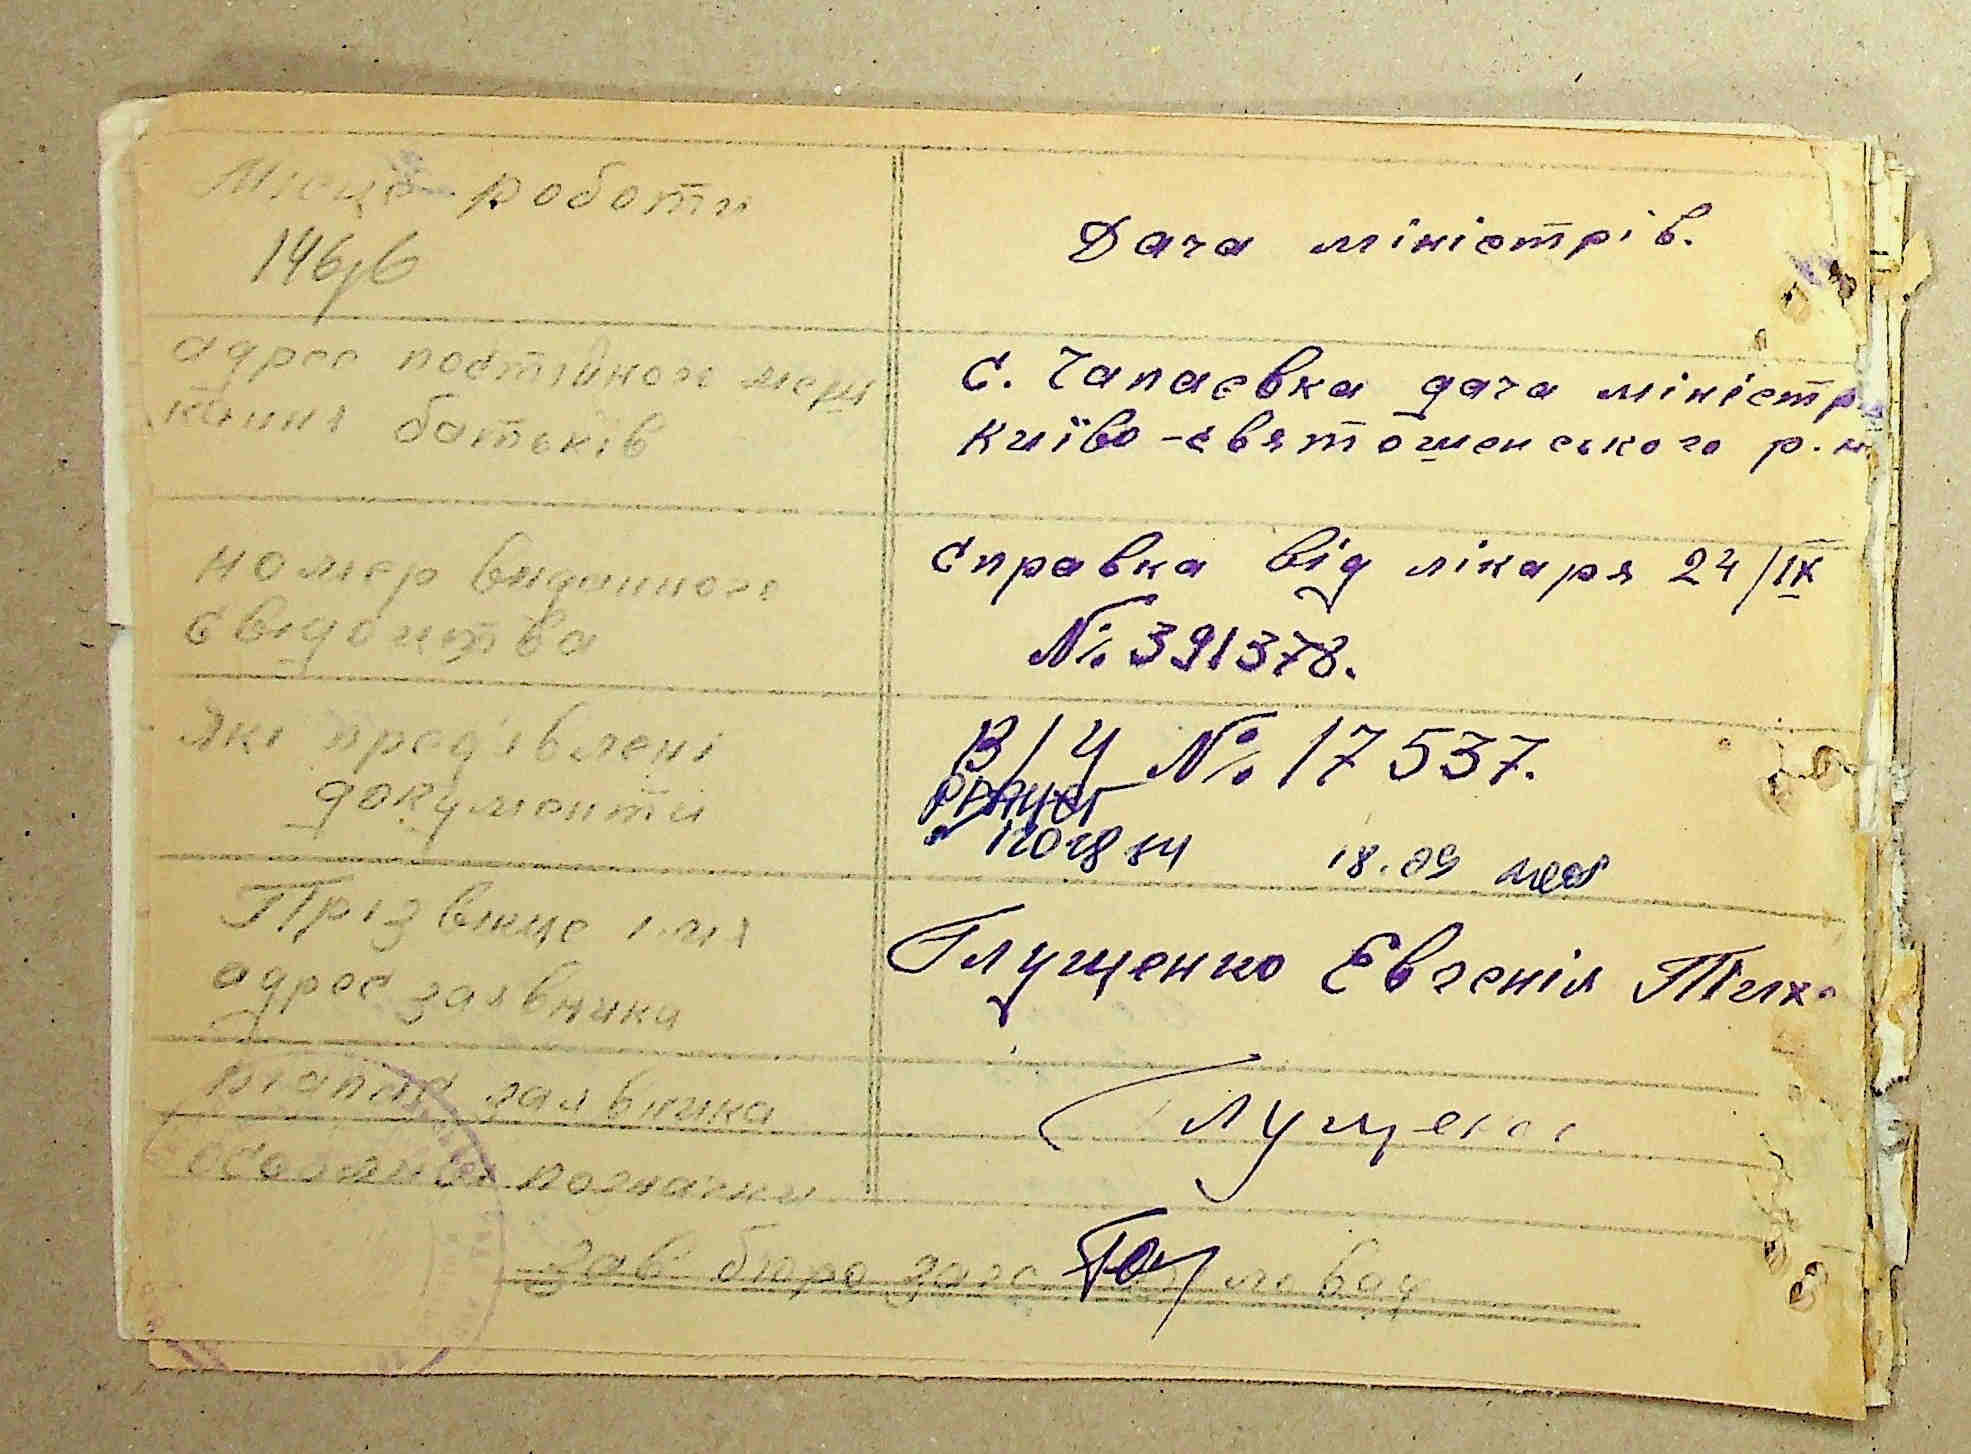 Місце роботи
146/6
Дача міністрів.
адрес постійного меш
кання батьків
с. Чапаєвка дача міністр
Київо-святошенського р.н
номер виданного
свідоцтва
Справка від лікаря 24/IX
№ 391378.
Які пред'явлені
документи
В/Ч № 17537.
18.09
Прізвище імя
адрес заявника
Глущенко Евгенія Тих
підпис заявника
Глущенко
особливі позначки
Зав бюро загс